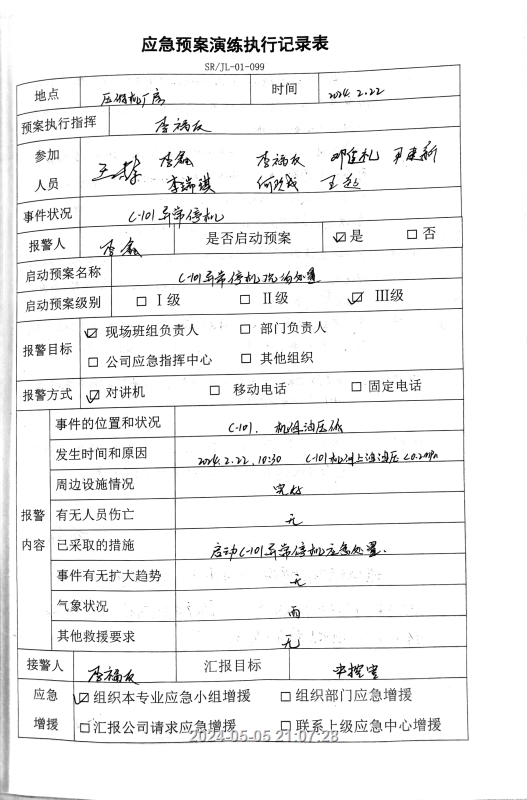 应急预案演练执行记录表
SR/JL-01-099
地点 压缩机厂房 时间 2024.2.22
预案执行指挥 李福友
参加 李鑫 李福友
人员 李瑞琪 王
事件状况 C-101异常停机
报警人 李鑫 是否启动预案 ☑是 □否
启动预案名称 C-101异常停机 处置
启动预案级别 □Ⅰ级 □Ⅱ级 ☑Ⅲ级
报警目标 ☑现场班组负责人 □部门负责人
□公司应急指挥中心 □其他组织
报警方式 ☑对讲机 □移动电话 □固定电话
报警内容 事件的位置和状况 C-101, 机 油压低
发生时间和原因 2024.2.22, 10:30 C-101机 油压<0.2MPa
周边设施情况 完好
有无人员伤亡 无
已采取的措施 启动C-101异常停机应急处置.
事件有无扩大趋势 无
气象状况 雨
其他救援要求 无
接警人 李福友 汇报目标 中控室
应急 ☑组织本专业应急小组增援 □组织部门应急增援
增援 □汇报公司请求应急增援 □联系上级应急中心增援
2024-05-05 21:07:28